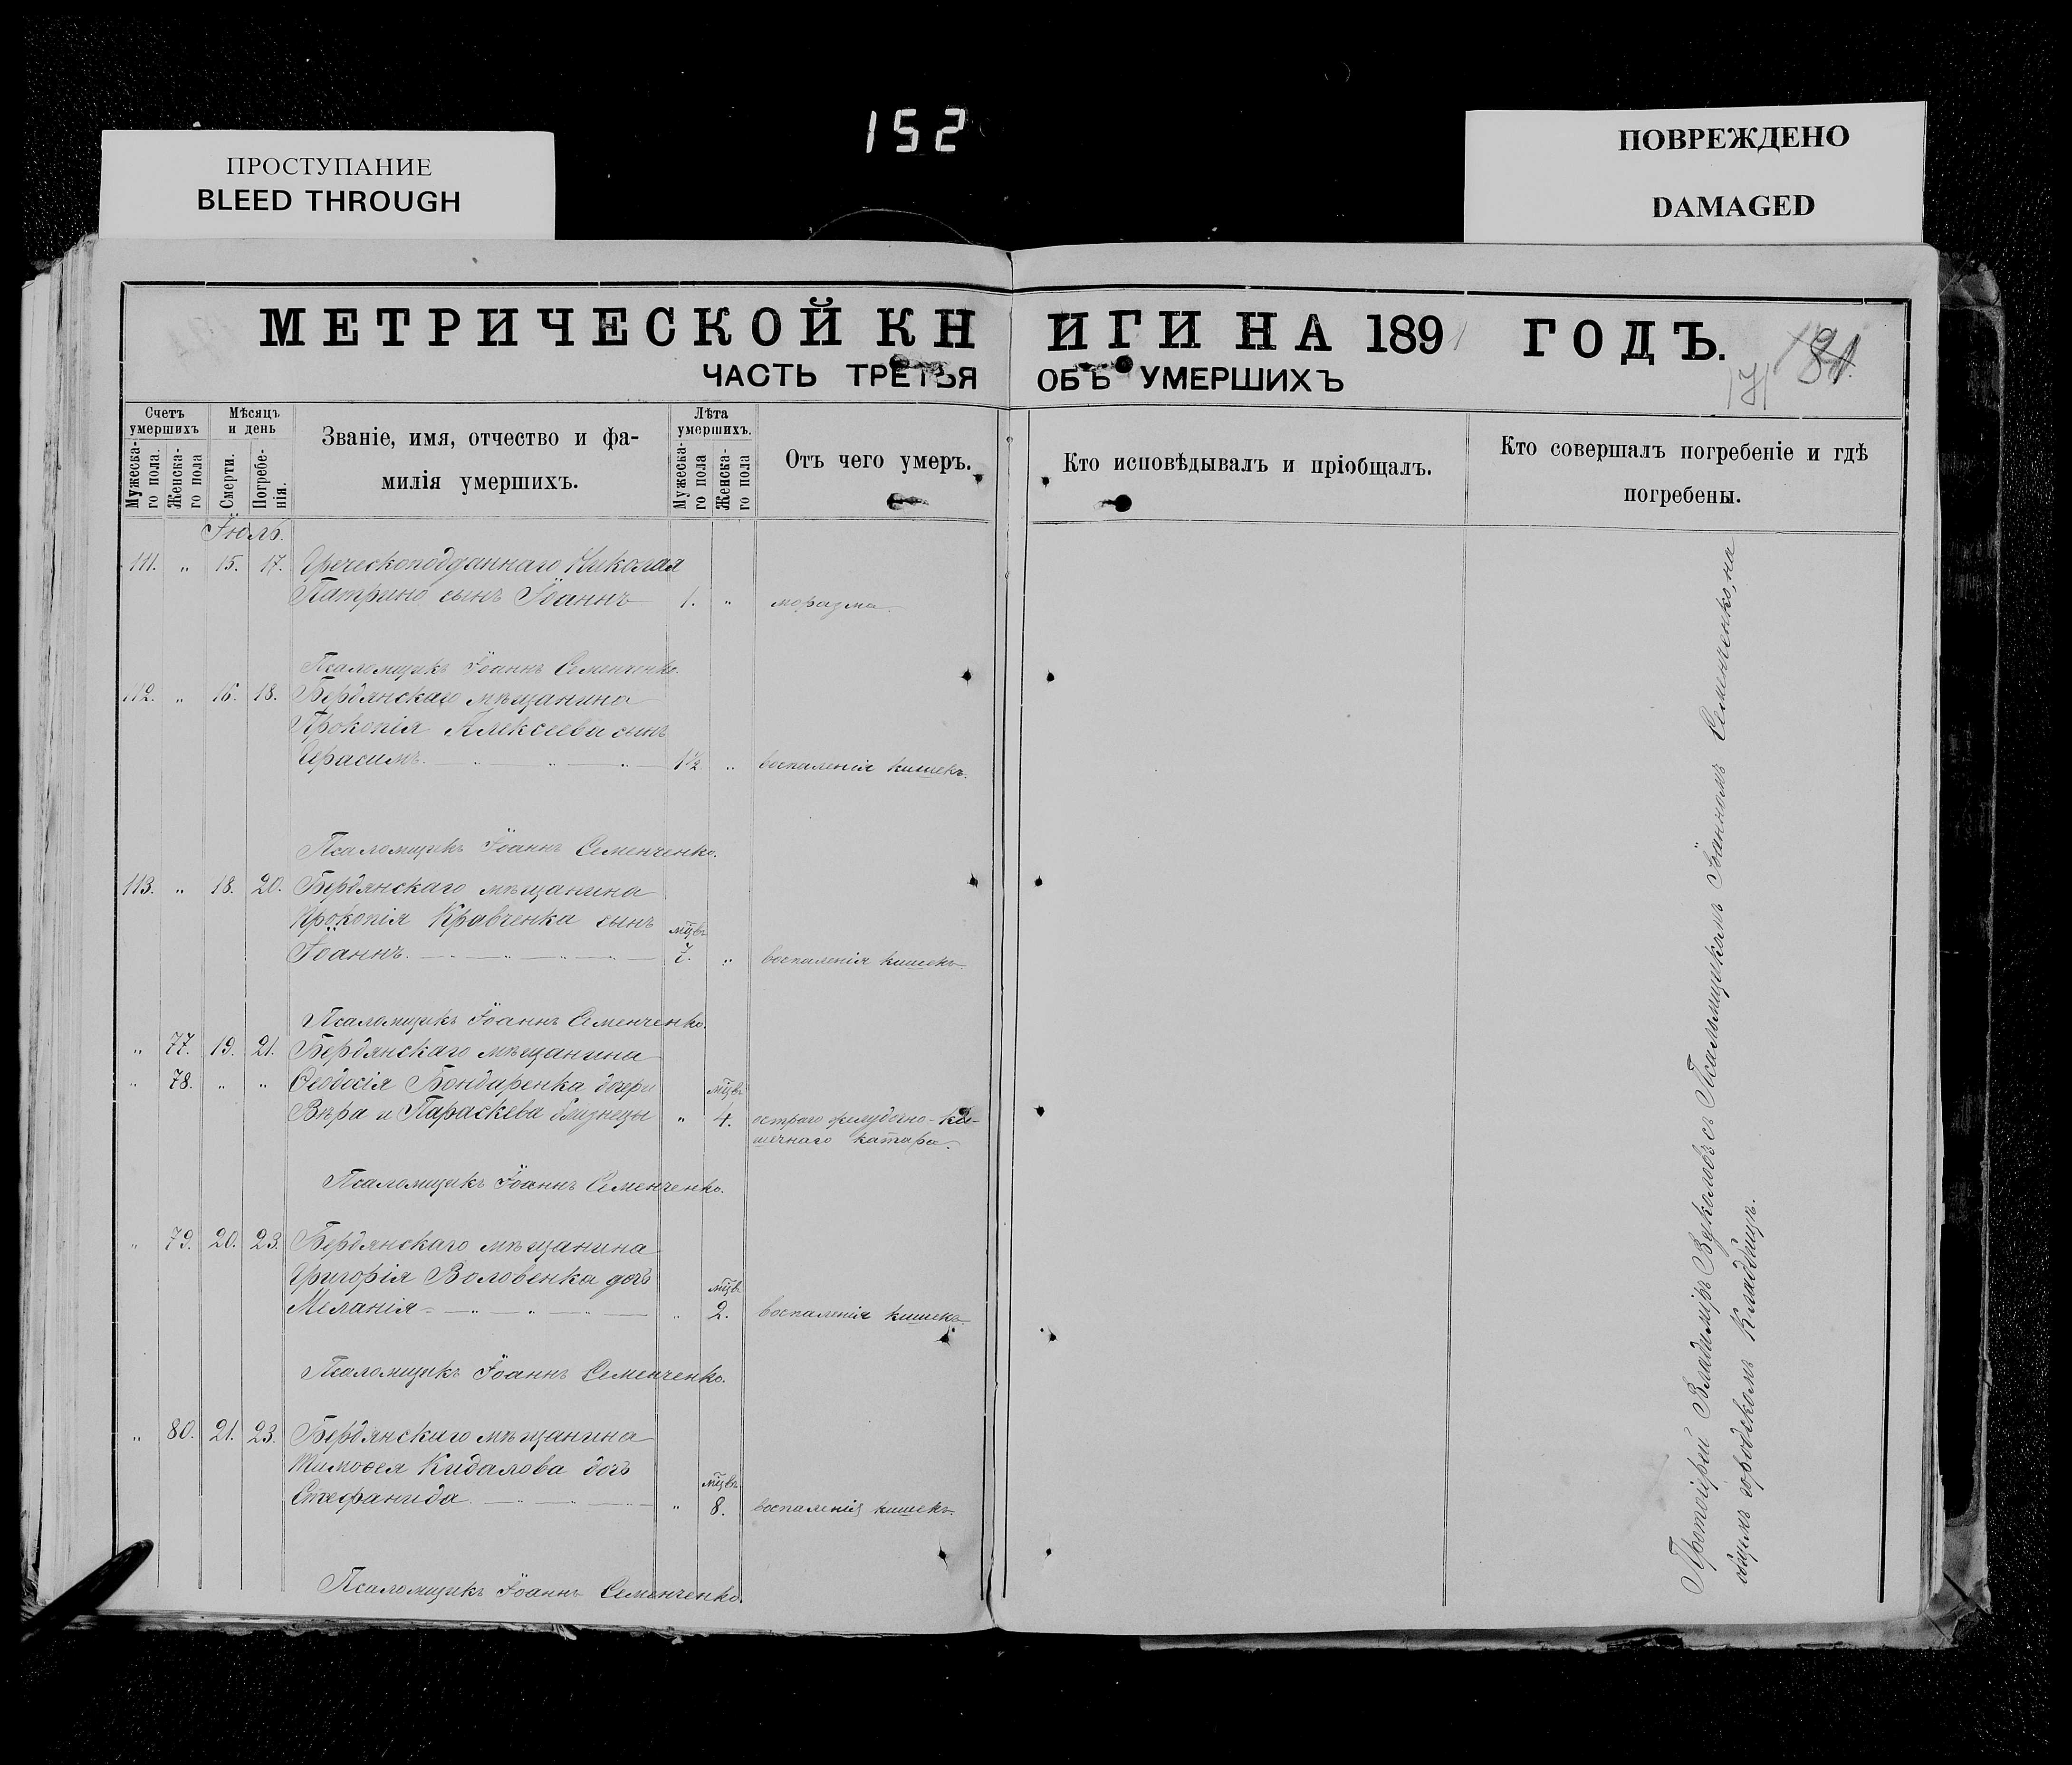 152
ПРОСТУПАНИЕ
BLEED THROUGH
ПОВРЕЖДЕНО
DAMAGED
МЕТРИЧЕСКОЙ КНИГИ НА 1891 ГОДЪ.
ЧАСТЬ ТРЕТЬЯ ОБЪ УМЕРШИХЪ
171
Счетъ умершихъ
Мужеска-го пола.
Женска-го пола
Мѣсяцъ и день
Смерти.
Погребе-нія.
Званіе, имя, отчество и фа-
милія умершихъ.
Лѣта умершихъ.
Мужеска-го пола
Женска-го пола
Отъ чего умеръ.
Кто исповѣдывалъ и пріобщалъ.
Кто совершалъ погребеніе и гдѣ
погребены.
Іюль.
111. „ 15. 17. Греческоподданнаго Николая
Патрино сынъ Іоаннъ 1. „ моразма.
Псаломщикъ Іоаннъ Семенченко.
112. „ 16. 18. Бердянскаго мѣщанина
Прокопія Алексеева сынъ
Герасимъ. 1½ „ воспаленія кишекъ.
Псаломщикъ Іоаннъ Семенченко.
113. „ 18. 20. Бердянскаго мѣщанина
Прокопія Кравченка сынъ мцвъ
Іоаннъ. 7. „ воспаленія кишекъ.
Псаломщикъ Іоаннъ Семенченко.
„ 77. 19. 21. Бердянскаго мѣщанина
„ 78. „ „ Ѳеодосія Бондаренка дочери мцвъ
Вѣра и Параскева близнецы „ 4. остраго желудочно-ки-
шечнаго катара.
Псаломщикъ Іоаннъ Семенченко.
„ 79. 20. 23. Бердянскаго мѣщанина
Григорія Воловенка дочь мцвъ
Меланія „ 2. воспаленія кишекъ.
Псаломщикъ Іоаннъ Семенченко.
„ 80. 21. 23. Бердянскаго мѣщанина
Тимоѳея Кидалова дочь мцвъ
Стефанида. „ 8. воспаленія кишекъ.
Псаломщикъ Іоаннъ Семенченко.
Протоіерей Владиміръ Вуколовъ съ Псаломщикомъ Іоанномъ Семенченко, на
общемъ городскомъ Кладбищѣ.